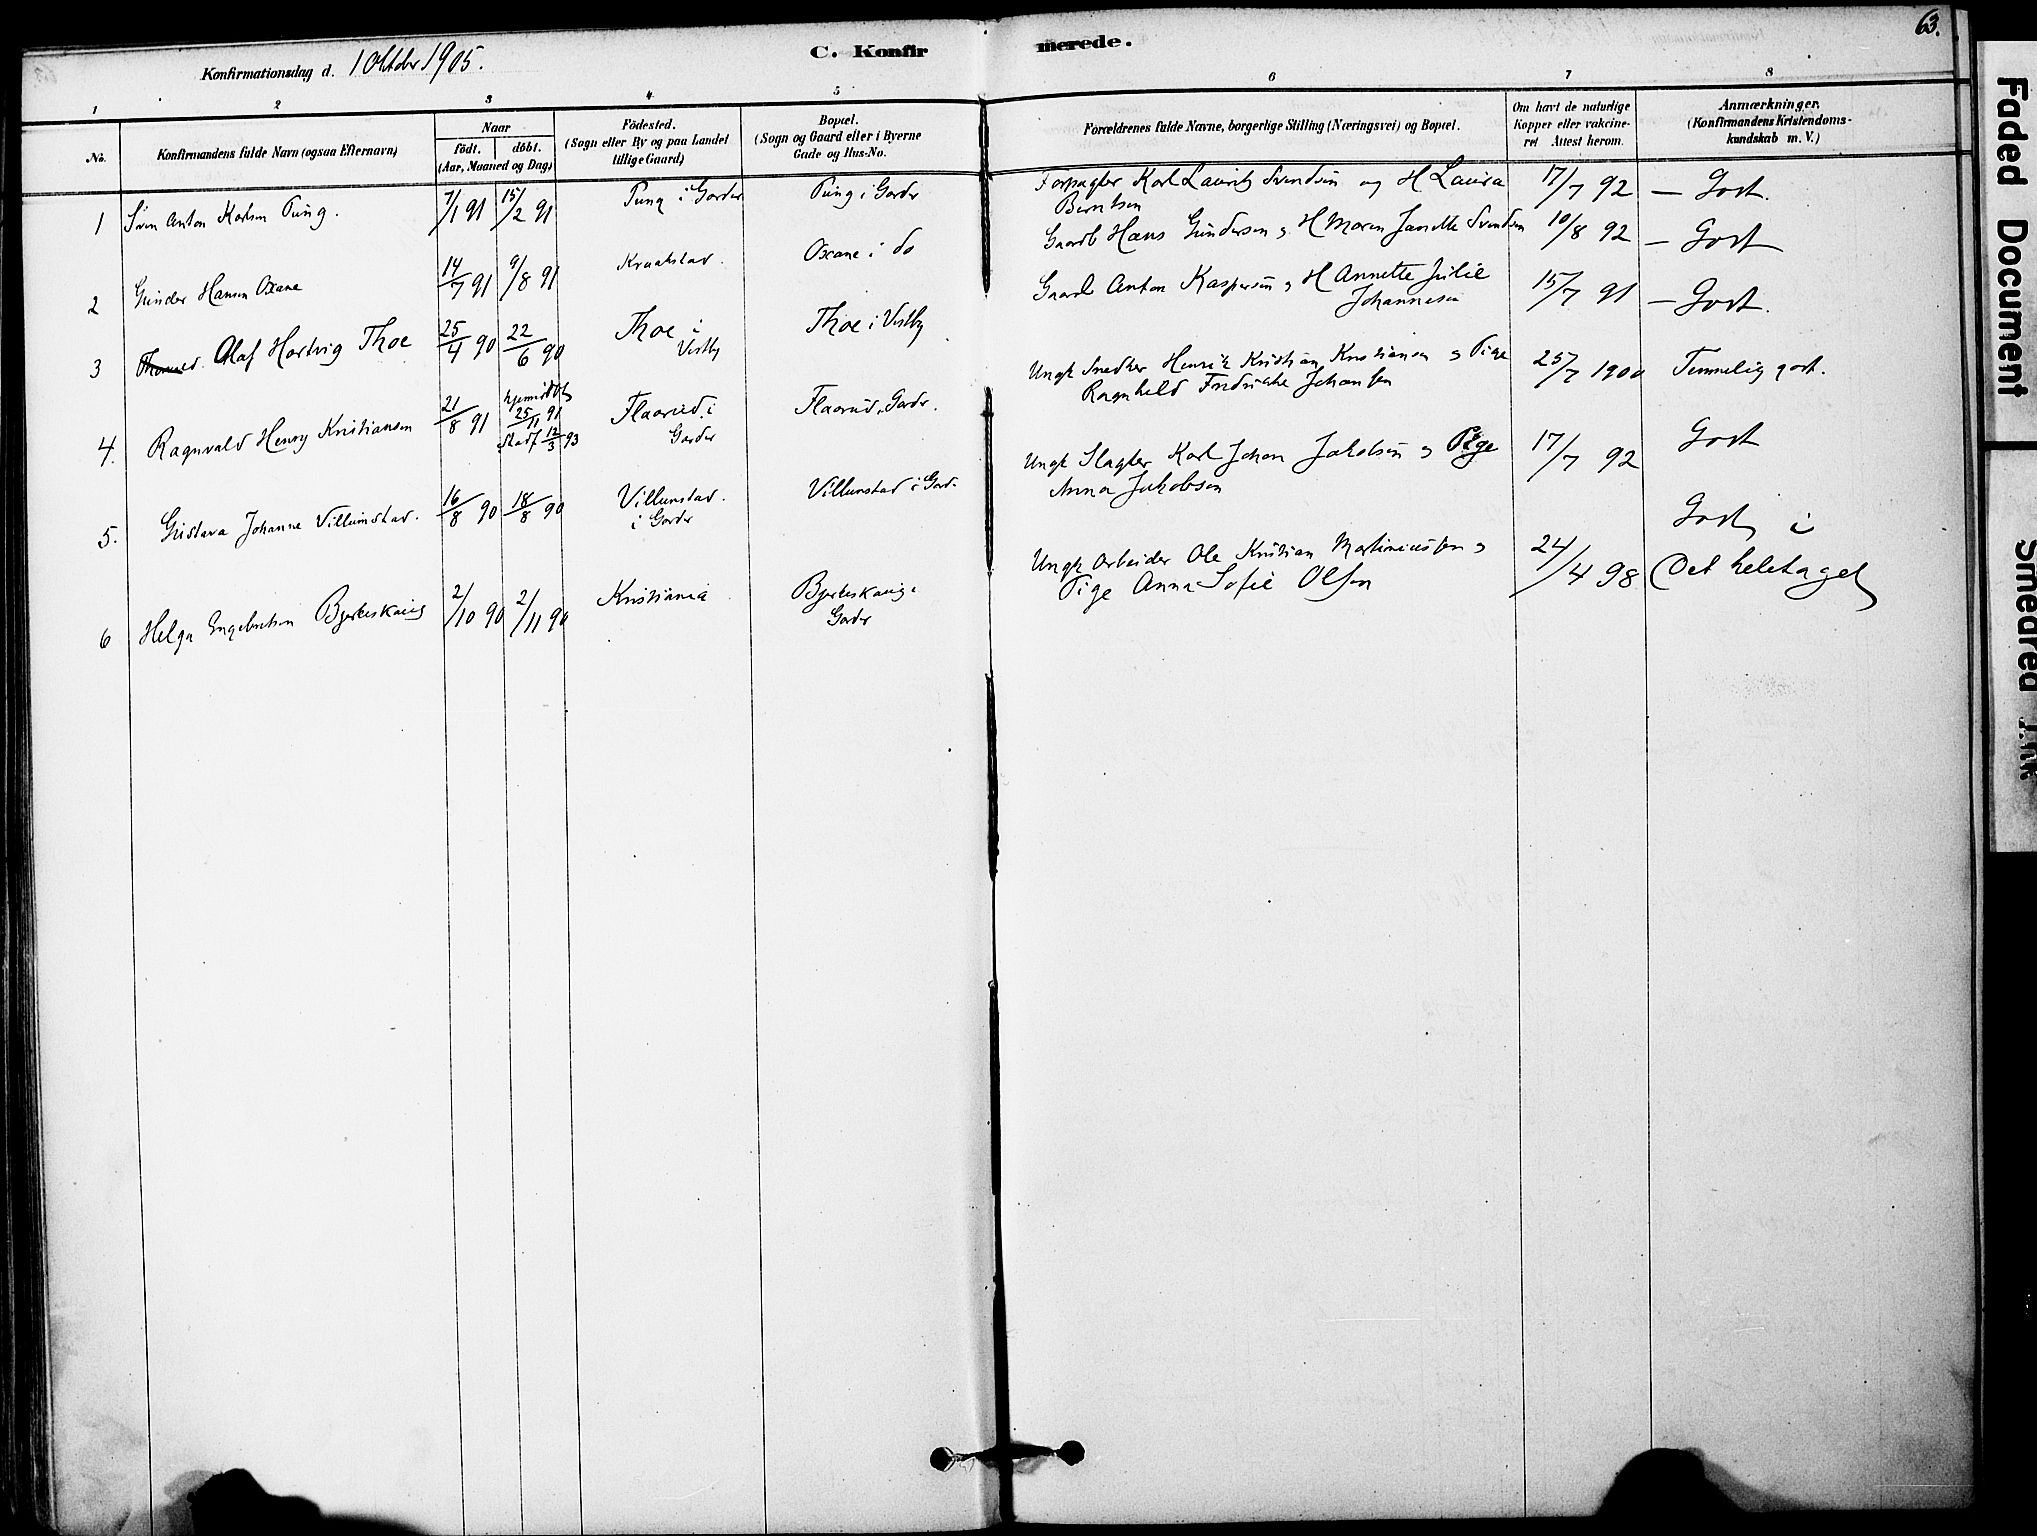 63.
C. Konfir merede.
Konfirmationsdag d. 1 Oktober 1905.
1 2 3 4 5 6 7 8
No. Konfirmandens fulde Navn (ogsaa Efternavn)
Naar
födt. döbt.
(Aar, Maaned og Dag)
Födested.
(Sogn eller By og paa Landet
tillige Gaard)
Bopæl.
(Sogn og Gaard eller i Byerne
Gade og Hus-No.
Forældrenes fulde Navne, borgerlige Stilling (Næringsvei) og Bopæl.
Om havt de naturlige
Kopper eller vakcine-
ret Attest herom.
Anmærkninger.
(Konfirmandens Kristendoms-
kundskab m. V.)
1 Sven Anton Karlsen Pung. 7/1 91 15/2 91 Pung i Garder Pung i Garder Forpagter Karl Lauritz Svendsen og H Laura
Berntsen 17/7 92 — Godt.
2 Gunder Hansen Oxane 14/7 91 9/8 91 Kraakstad. Oxane i do Gaardb Hans Gundersen og H Maren Janette Svendsen 10/8 92 — Godt
3 Thorvald Olaf Hartvig Thoe 25/4 90 22/6 90 Thoe i
Vestby Thoe i Vestby Gaardb Anton Kaspersen og H Annette Julie
Johannesen 15/7 91 — Godt.
4. Ragnvald Henry Kristiansen 21/8 91 hjemmedøbt
25/11 91
Stadf 12/3 93 Flaarud i
Garder Flaarud, Garder. Ungk Snedker Henrik Kristian Kristiansen og Pige
Ragnhild Fredrikke Johansen 25/7 1900 Temmelig godt.
5. Gustava Johanne Villumstad. 16/8 90 18/8 90 Villumstad.
i Garder Villumstad i Gard. Ungk Slagter Karl Johan Jakobsen og Pige
Anna Jakobsen 17/7 92 Godt
6 Helga Engebretsen Bjerkeskaug 2/10 90 2/11 90 Kristiania Bjerkeskaug i
Garder Ungk Arbeider Ole Kristian Martiniussen og
Pige Anna Sofie Olsen 24/4 98 Godt i
Det heletaget
Faded Document
Smeared Ink